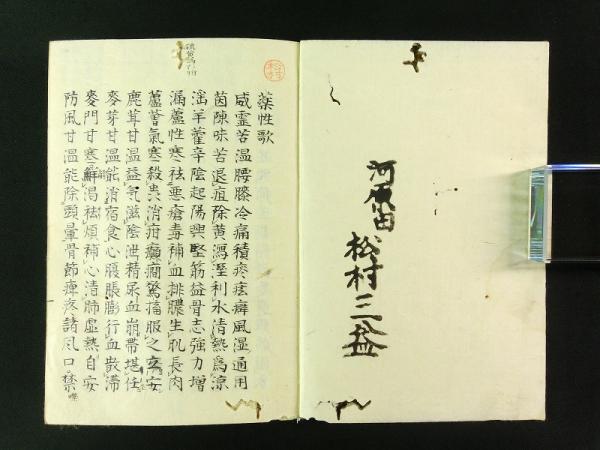 河原田
松村三益
藥性歌
威靈苦溫腰膝冷痛積痰痃癖風湿通用
茵陳味苦退疸除黃瀉湿利水清熱爲凉
淫羊藿辛陰起陽興堅筋益骨志強力増
漏蘆性寒祛悪瘡毒補血排膿生肌長肉
蘆薈氣寒殺虫消疳癲癇驚搐服之立安
鹿茸甘温益氣滋陰泄精尿血崩帯堪任
麥芽甘温能消宿食心腹脹膨行血散滞
麥門甘寒解渇祛煩補心清肺虚熱自安
防風甘温能除頭暈骨節痺疼諸風口禁